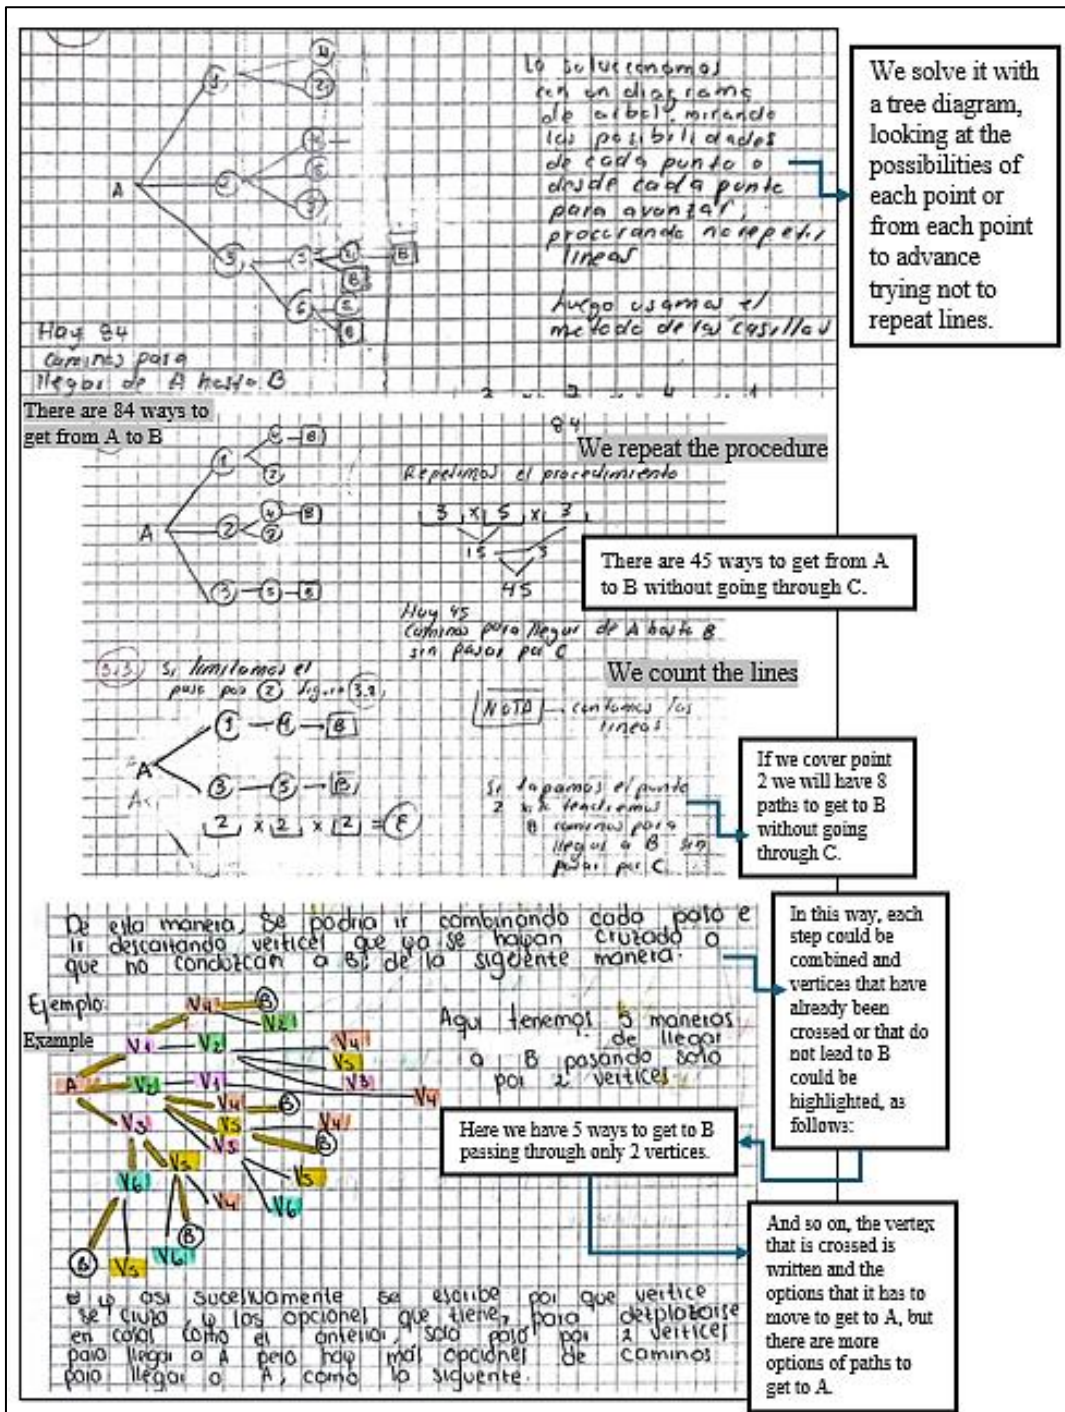 4
1
2
Lo solucionamos
con un diagrama
de arbol, mirando
las posibilidades
de cada punto o
desde cada punto
para avanzar,
procurando no repetir
lineas
Luego usamos el
metodo de las casillas
A
2
3
5
B
B
6
5
B
Hay 84
Caminos para
llegar de A hasta B
We solve it with
a tree diagram,
looking at the
possibilities of
each point or
from each point
to advance
trying not to
repeat lines.
There are 84 ways to
get from A to B
84
We repeat the procedure
Repetimos el procedimiento
A
1
4
B
2
2
4
B
3
5
B
3 x 5 x 3
15 3
45
There are 45 ways to get from A
to B without going through C.
Hay 45
Caminos para llegar de A hasta B
sin pasar por C
We count the lines
3.3
Si limitamos el
paso por 2 figura 3.3
NOTA contamos las
lineas
A
1 4 B
3 5 B
2 x 2 x 2 = 8
Si tapamos el punto
2 tendremos
8 caminos para
llegar a B sin
pasar por C
If we cover point
2 we will have 8
paths to get to B
without going
through C.
De esta manera, se podria ir combinando cada paso e
ir descartando vertices que ya se hayan cruzado o
que no conduzcan a B, de la siguiente manera.
In this way, each
step could be
combined and
vertices that have
already been
crossed or that do
not lead to B
could be
highlighted, as
follows:
Ejemplo:
Example
V4 B
V2
V1 V2 V4
V5
V3
A V2 V1 V4
V4 B
V3 V5 V4
V3 B
V5
V6
V6 V5
V4
B
V6
B V5
Aqui tenemos 5 maneras
de llegar
a B pasando solo
por 2 vertices
Here we have 5 ways to get to B
passing through only 2 vertices.
y asi sucesivamente se escribe por que vertice
se cruzo, y las opciones que tiene, para desplazarse
en casos como el anterior, solo paso por 2 vertices
para llegar a A pero hay mas opciones de caminos
para llegar a A, como lo siguente.
And so on, the vertex
that is crossed is
written and the
options that it has to
move to get to A, but
there are more
options of paths to
get to A.